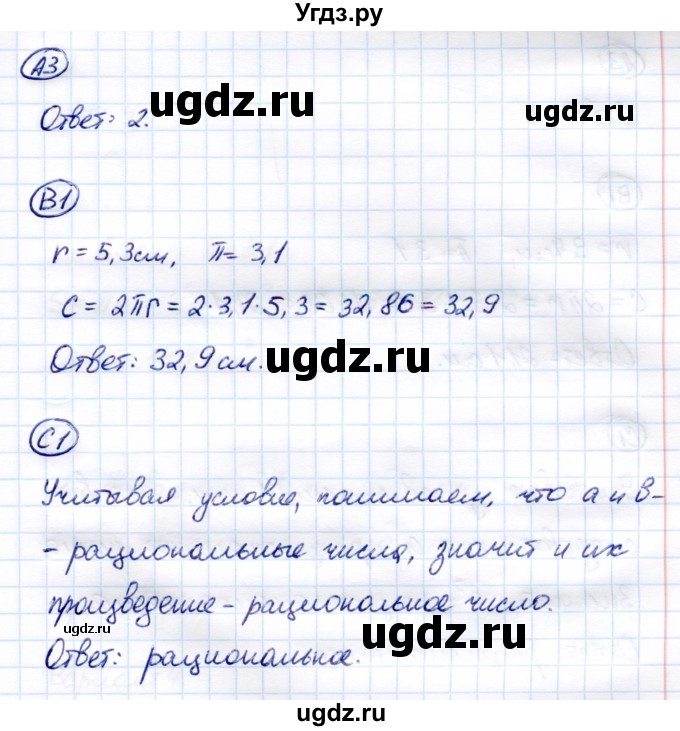 Угдз.ру
А3
Ответ: 2.
ugdz.ru
ugdz.ru
В1
r = 5,3см, π = 3,1
C = 2πr = 2·3,1·5,3 = 32,86 = 32,9
Ответ: 32,9 см.
ugdz.ru
С1
Учитывая условие, понимаем, что а и в-
- рациональные числа, значит и их
произведение - рациональное число.
ugdz.ru
ugdz.ru
Ответ: рациональное.
ugdz.ru